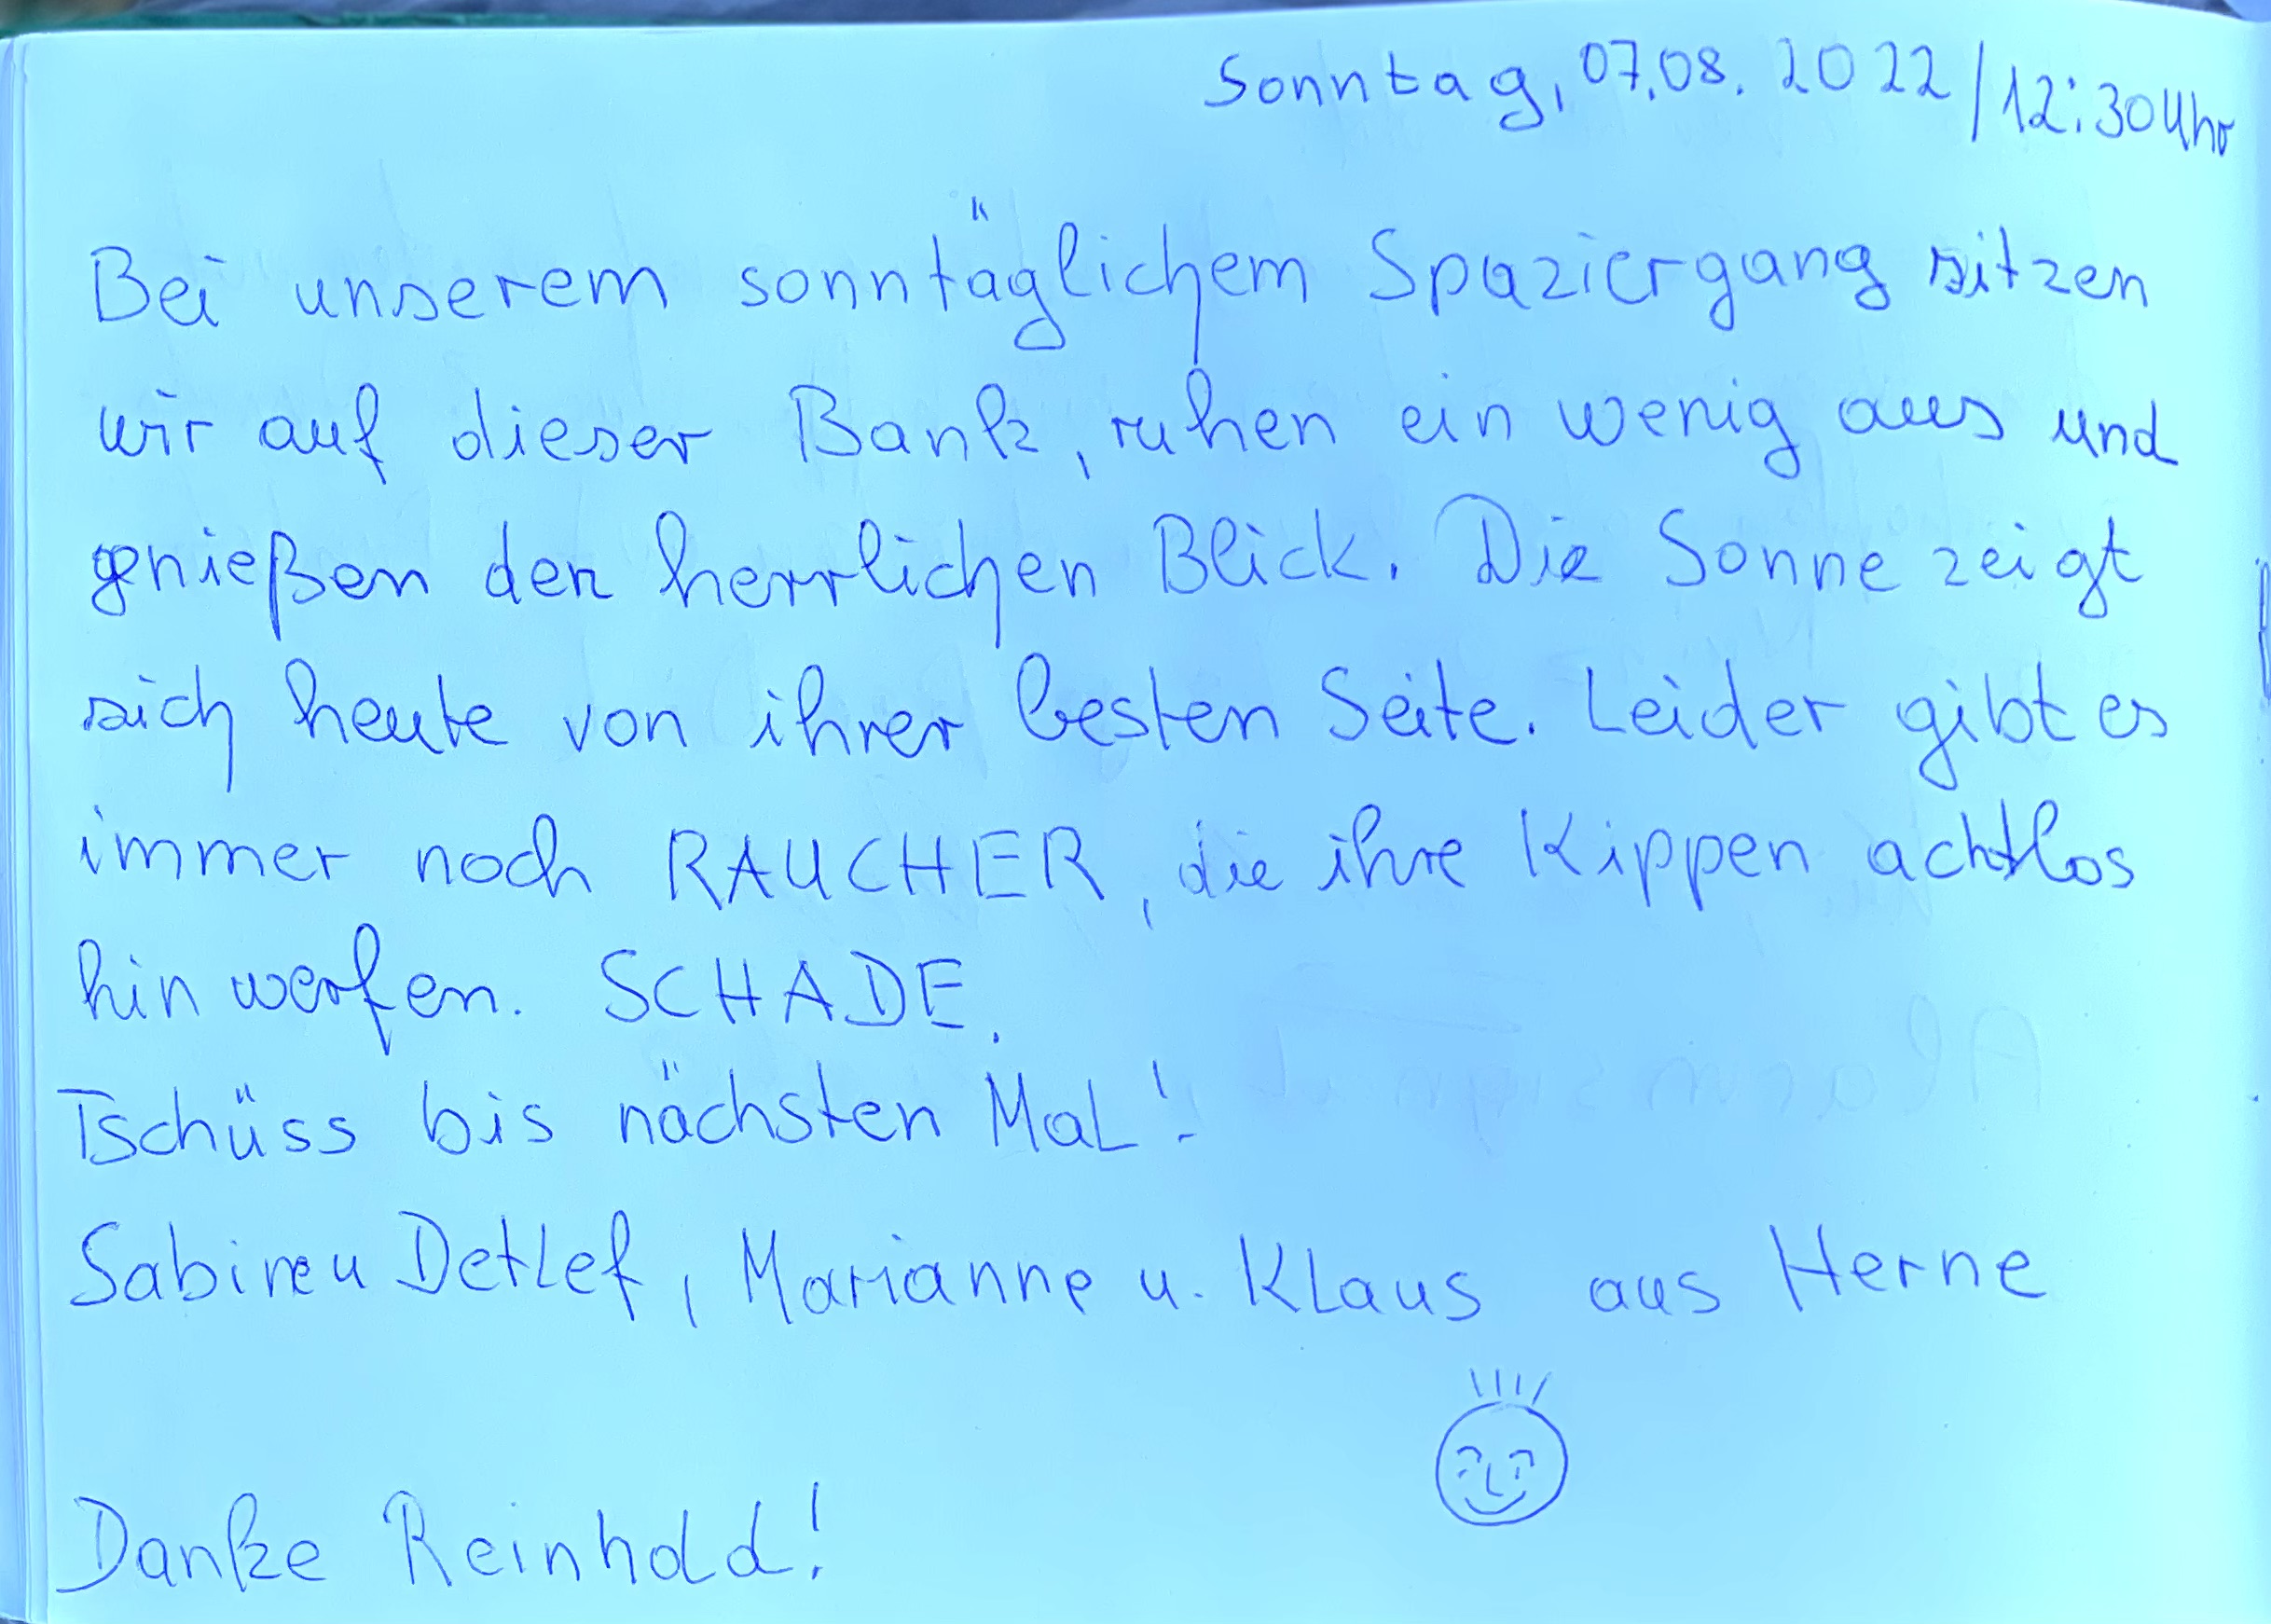 Sonntag, 07.08. 2022 / 12:30 Uhr
Bei unserem sonntäglichem Spaziergang sitzen
wir auf dieser Bank, ruhen ein wenig aus und
genießen den herrlichen Blick. Die Sonne zeigt
sich heute von ihrer besten Seite. Leider gibt es
immer noch RAUCHER, die ihre Kippen achtlos
hinwerfen. SCHADE.
Tschüss bis nächsten Mal!
Sabine u Detlef, Marianne u. Klaus aus Herne
Danke Reinhold!